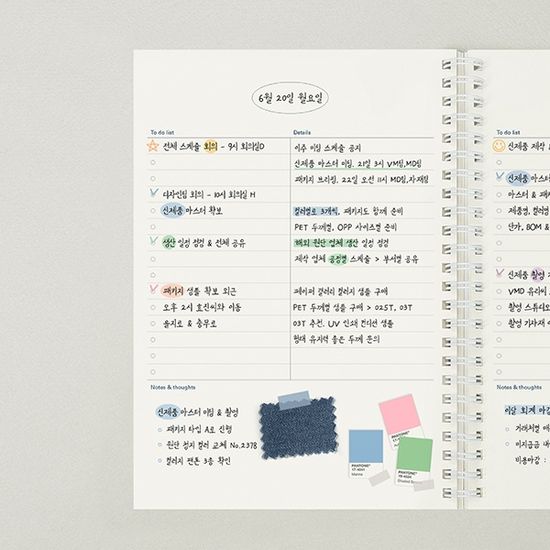 6월 20일 월요일
To do list
Details
전체 스케줄 회의 - 9시 회의실D
이주 미팅 스케줄 공지
신제품 마스터 미팅, 21일 3시 VM팀,MD팀
패키지 브리핑, 22일 오전 11시 MD팀,자재팀
디자인팀 회의 - 10시 회의실 H
신제품 마스터 확보
컬러별로 3개씩, 패키지도 함께 준비
PET 두께별, OPP 사이즈별 준비
생산 일정 점검 & 전체 공유
해외 원단 업체 생산 일정 점검
제작 업체 공정별 스케줄 > 부서별 공유
패키지 샘플 확보 외근
페이퍼 갤러리 컬러지 샘플 구매
오후 2시 효신씨와 이동
PET 두께별 샘플 구매 > 025T, 03T
을지로 & 충무로
03T 추천, UV 인쇄 컨디션 샘플
형태 유지력 좋은 두께 문의
Notes & thoughts
신제품 마스터 미팅 & 촬영
패키지 타입 A로 진행
원단 접지 컬러 교체 No.2378
컬러지 팬톤 3종 확인
PANTONE
PANTONE
PANTONE
To do list
신제품
신제품 마
마스터 & 패키
제품별, 컬러별
단가, BOM &
신제품 촬영
VMD 유리씨
촬영 스튜디오
촬영 기자재
Notes & thoughts
이달 회계 마감
거래처별
미지급금
비용마감 :